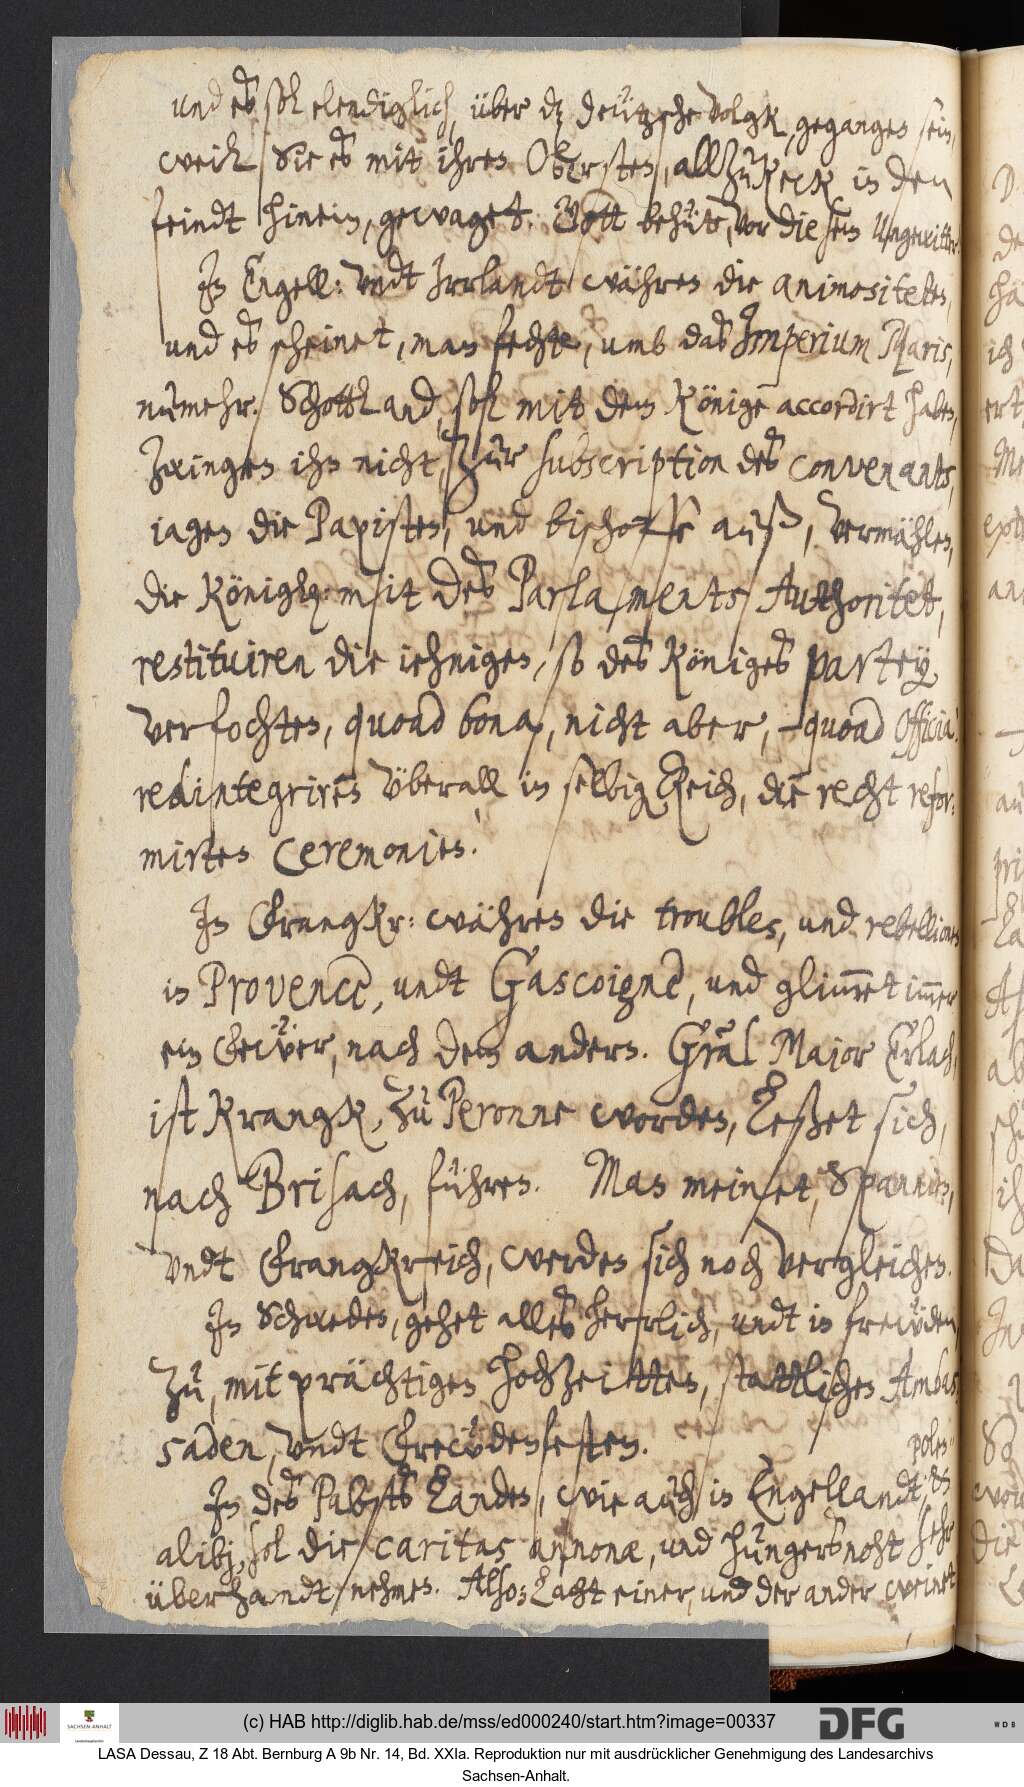 und es sol elendiglich, über dz deützsche volgk, gegangen sein,
weil Sie es mit ihren Obersten, allzukeck in den
feindt hinein, gewaget. Gott behüte, vor diesem Ungewitter.
In Engell: vndt Irrlandt währen die animositeten,
und es scheinet, man fechte, umb das Imperium Maris,
nunmehr. Schottland, soll mit dem Könige accordirt haben,
zwingen ihn nicht, zur subscription des convenants,
iagen die Papisten, und bischoffe auß, vermählen,
die Königl: mit des Parlaments Authoritet,
restituiren die iehnigen, so des Königes partey
verfochten, quoad bona, nicht aber, quoad Officia.
redintegriren überall, in selbig Reich, die recht refor:
mirten Ceremonien.
In Frangkr: währen die troubles, und rebellionen
in Provence, undt Gascoigne, und glimmet immer
ein Feuer, nach dem andern. Gral Major Erlach,
ist Krangk, zu Peronne worden, Leßet sich,
nach Brisach, führen. Man meinet, Spannien,
vndt Frangkreich, werden sich noch vergleichen.
In Schweden, gehet alles herrlich, undt in freuden
zu, mit prächtigen hochzeitten, stattlichen Ambas
saden, vndt Freudenfesten.
In des Pabsts Landen, wie auch in Engellandt, Polen &
alibj, sol die caritas annonæ, und hungersnoht sehr
überhandt nehmen. Also: Lacht einer, und der ander weinet
(c) HAB http://diglib.hab.de/mss/ed000240/start.htm?image=00337
SACHSEN-ANHALT
DFG
WDB
LASA Dessau, Z 18 Abt. Bernburg A 9b Nr. 14, Bd. XXIa. Reproduktion nur mit ausdrücklicher Genehmigung des Landesarchivs
Sachsen-Anhalt.